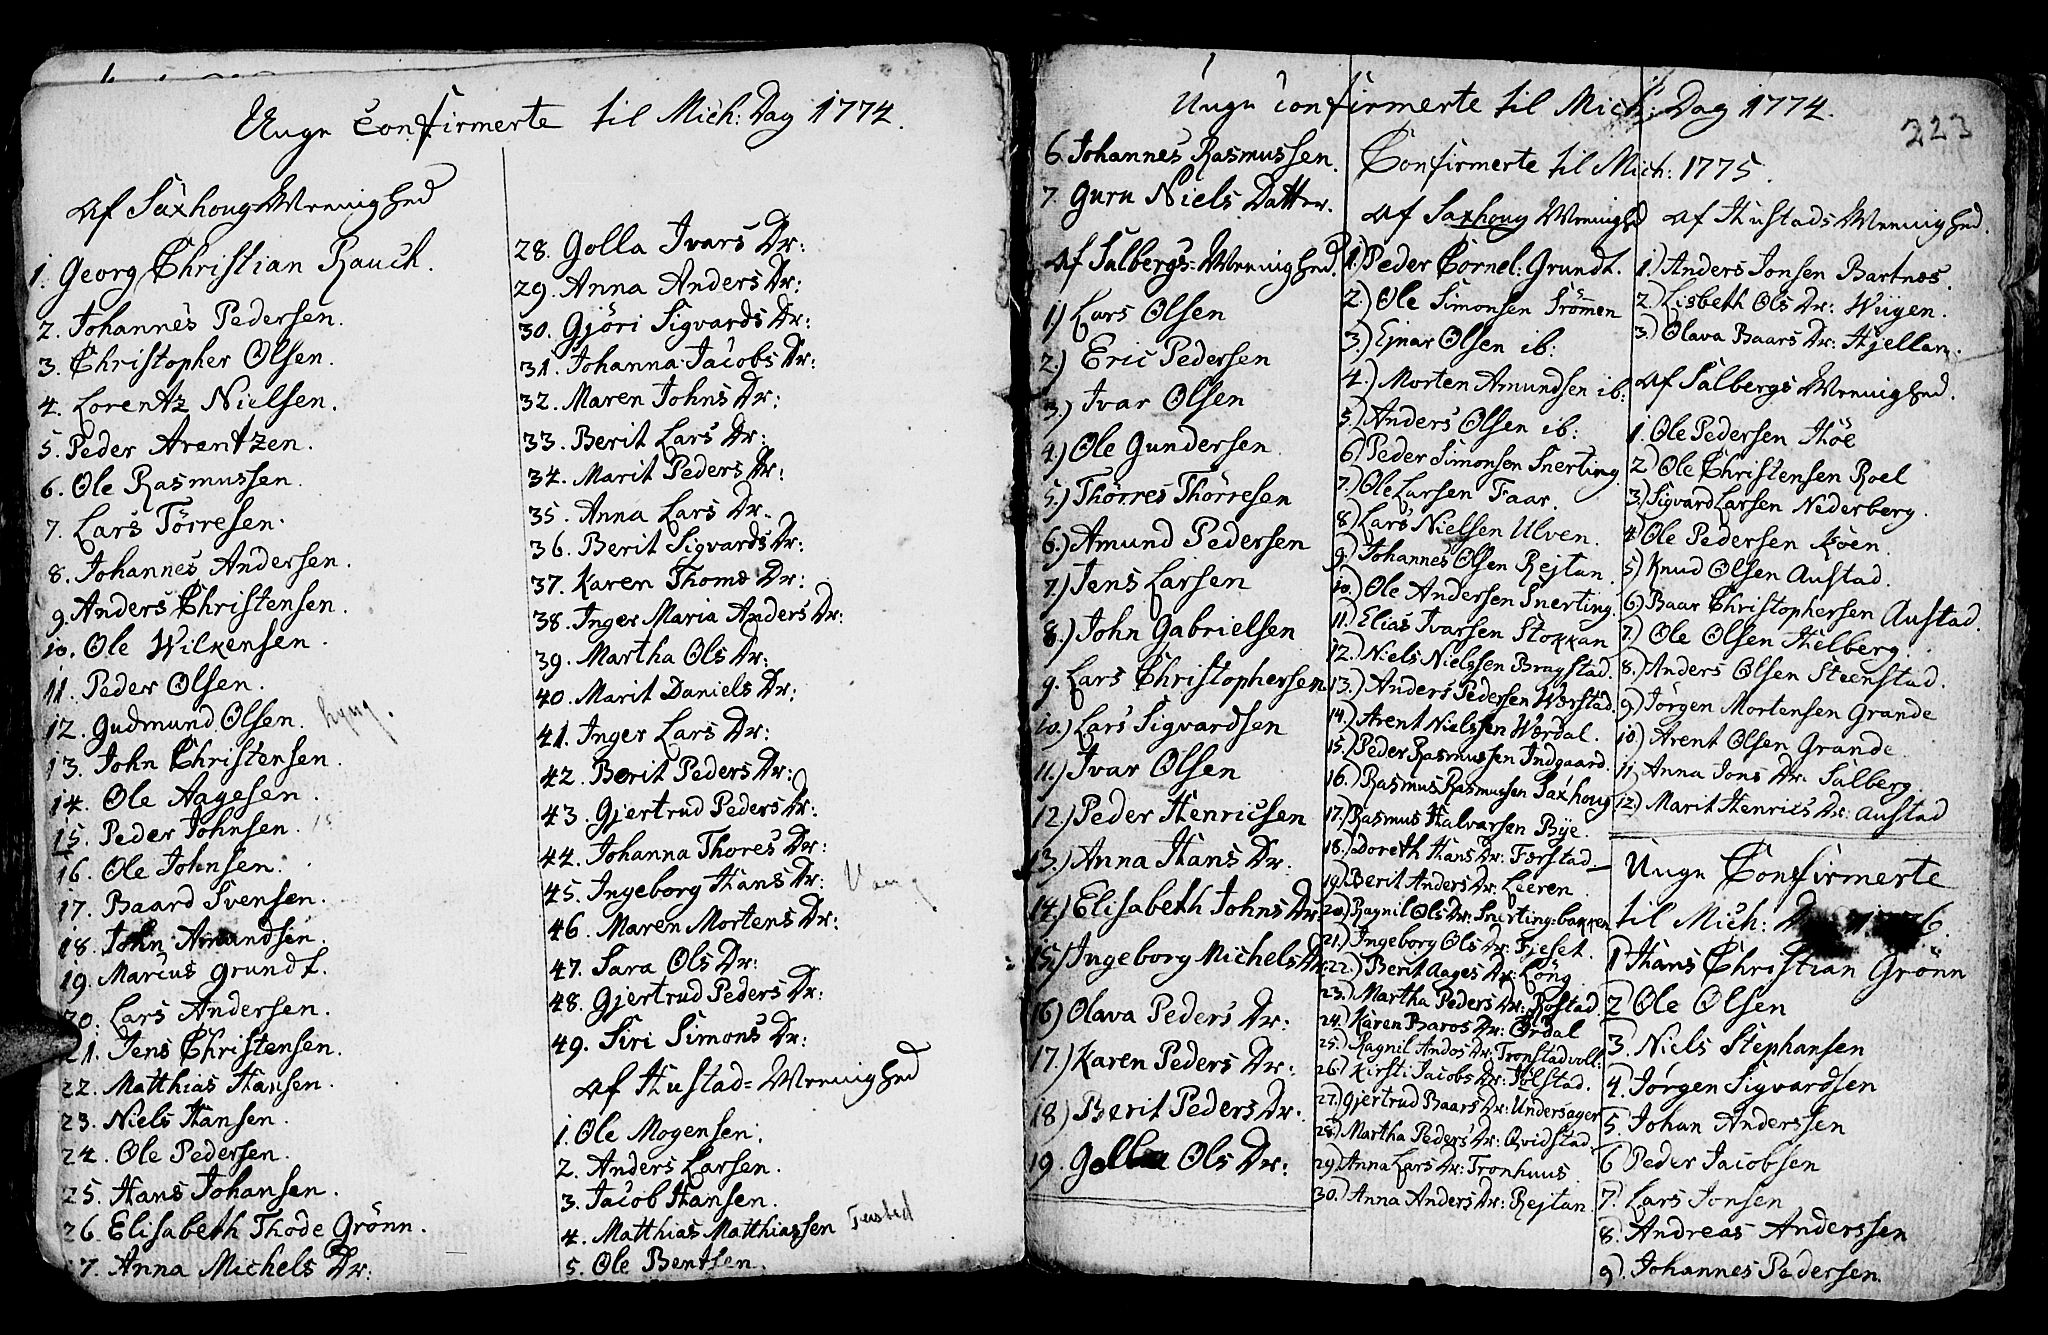 Unge Confirmerte til Mich: Dag 1774.
Af Saxhoug Mænighed
1. Georg Christian Rauch.
2. Johannes Pedersen.
3. Christopher Olsen.
4. Lorentz Nielsen.
5. Peder Arentzen.
6. Ole Rasmussen.
7. Lars Törresen.
8. Johannes Andersen.
9. Anders Christensen.
10. Ole Wilkensen.
11. Peder Olsen.
12. Gudmund Olsen. lyng.
13. John Christensen.
14. Ole Aagesen.
15. Peder Johnsen.
16. Ole Johnsen.
17. Baard Svensen.
18. John Amundsen.
19. Marcus Grundt.
20. Lars Andersen.
21. Jens Christensen.
22. Matthias Hansen.
23. Niels Hansen.
24. Ole Pedersen.
25. Hans Johansen.
26. Elisabeth Thode Grönn.
27. Anna Michels Dr:
28. Golla Ivars Dr:
29. Anna Anders Dr:
30. Gjöri Sigvards Dr:
31. Johanna Jacobs Dr:
32. Maren Johns Dr:
33. Berit Lars Dr:
34. Marit Peders Dr:
35. Anna Lars Dr.
36. Berit Sigvards Dr:
37. Karen Thomæ Dr:
38. Inger Maria Anders Dr:
39. Martha Ols Dr:
40. Marit Daniels Dr:
41. Inger Lars Dr:
42. Berit Peders Dr:
43. Gjertrud Peders Dr:
44. Johanna Thores Dr:
45. Ingeborg Hans Dr: Vang
46. Maren Mortens Dr:
47. Sara Ols Dr:
48. Gjertrud Peders Dr:
49. Siri Simons Dr:
Af Hustad=Mænighed
1. Ole Mogensen.
2. Anders Larsen.
3. Jacob Hansen.
4. Matthias Matthiassen
5. Ole Bentsen.
Unge Confirmerte til Mich: Dag 1774.
223
6. Johannes Rasmussen.
7. Guru Niels Datter.
Af Salbergs=Mænighed.
1) Lars Olsen
2.) Eric Pedersen
3.) Ivar Olsen
4.) Ole Gundersen
5.) Thörres Thörresen
6.) Amund Pedersen
7.) Jens Larsen
8.) John Gabrielsen
9. Lars Christophersen
10.) Lars Sigvardsen
11.) Ivar Olsen
12.) Peder Henricsen
13.) Anna Hans Dr.
14.) Elisabeth Johns Dr:
15.) Ingeborg Michels Dr:
16) Olava Peders Dr:
17.) Karen Peders Dr:
18) Berit Peders Dr.
19. Golla Ols Dr:
Confirmerte til Mich: 1775.
Af Saxhoug Mænighed
1.) Peder Cornel: Grundt.
2.) Ole Simonsen Srömen
3.) Ejnar Olsen ib:
4.) Morten Amundsen ib:
5.) Anders Olsen ib:
6) Peder Simonsen Snerting.
7.) Ole Larsen Faar.
8) Lars Nielsen Ulven.
9.) Johannes Olsen Rejtan.
10.) Ole Andersen Snerting.
11.) Elias Ivarsen Stokkan
12.) Niels Nielssen Bragstad.
13.) Anders Pedersen Wærstad.
14.) Arent Nielssen Wærdal.
15.) Peder Rasmussen Indgaard.
16.) Rasmus Rasmussen Saxhoug
17.) Rasmus Halvarsen Bye.
18.) Doreth Hans Dr: Færstad.
19.) Berit Anders Dr: Leeren.
20.) Ragnil Ols Dr: Snerting=bakken
21.) Ingeborg Ols Dr: Fjeset.
22.) Berit Aages Dr: Löng
23.) Martha Peders Dr: Rostad.
24.) Karen Baros Dr: Ördal
25.) Ragnil Andos Dr: Tronstadvoll:
26.) Kirsti Jacobs Dr: Tölstad.
27.) Gjertrud Baars Dr: Undersager
28.) Martha Peders Dr: Qvidstad.
29.) Anna Lars Dr: Tronhuus
30.) Anna Anders Dr: Rejtan.
Af Hustads Mænighed.
1.) Anders Jonsen Bartnes.
2.) Lisbeth Ols Dr: Wiigen.
3.) Olava Baars Dr: Hjellan.
Af Salbergs Mænighed.
1. Ole Pedersen Höe
2) Ole Christensen Roel
3.) Sigvard Larsen Nederberg.
4) Ole Pedersen Köen.
5) Knud Olsen Austad.
6) Baar Christophersen Austad.
7.) Ole Olsen Helberg.
8.) Anders Olsen Steenstad.
9.) Jörgen Mortensen Grande
10) Arent Olsen Grande
11) Anna Jons Dr. Salberg.
12) Marit Henrics Dr: Austad
Unge Confirmerte
til Mich: 1776.
1 Hans Christian Grönn
2 Ole Olsen
3. Niels Stephansen
4. Jörgen Sigvardsen
5. Johan Anderssen
6 Peder Jacobsen
7. Lars Jonsen
8. Andreas Anderssen
9). Johannes Pedersen.